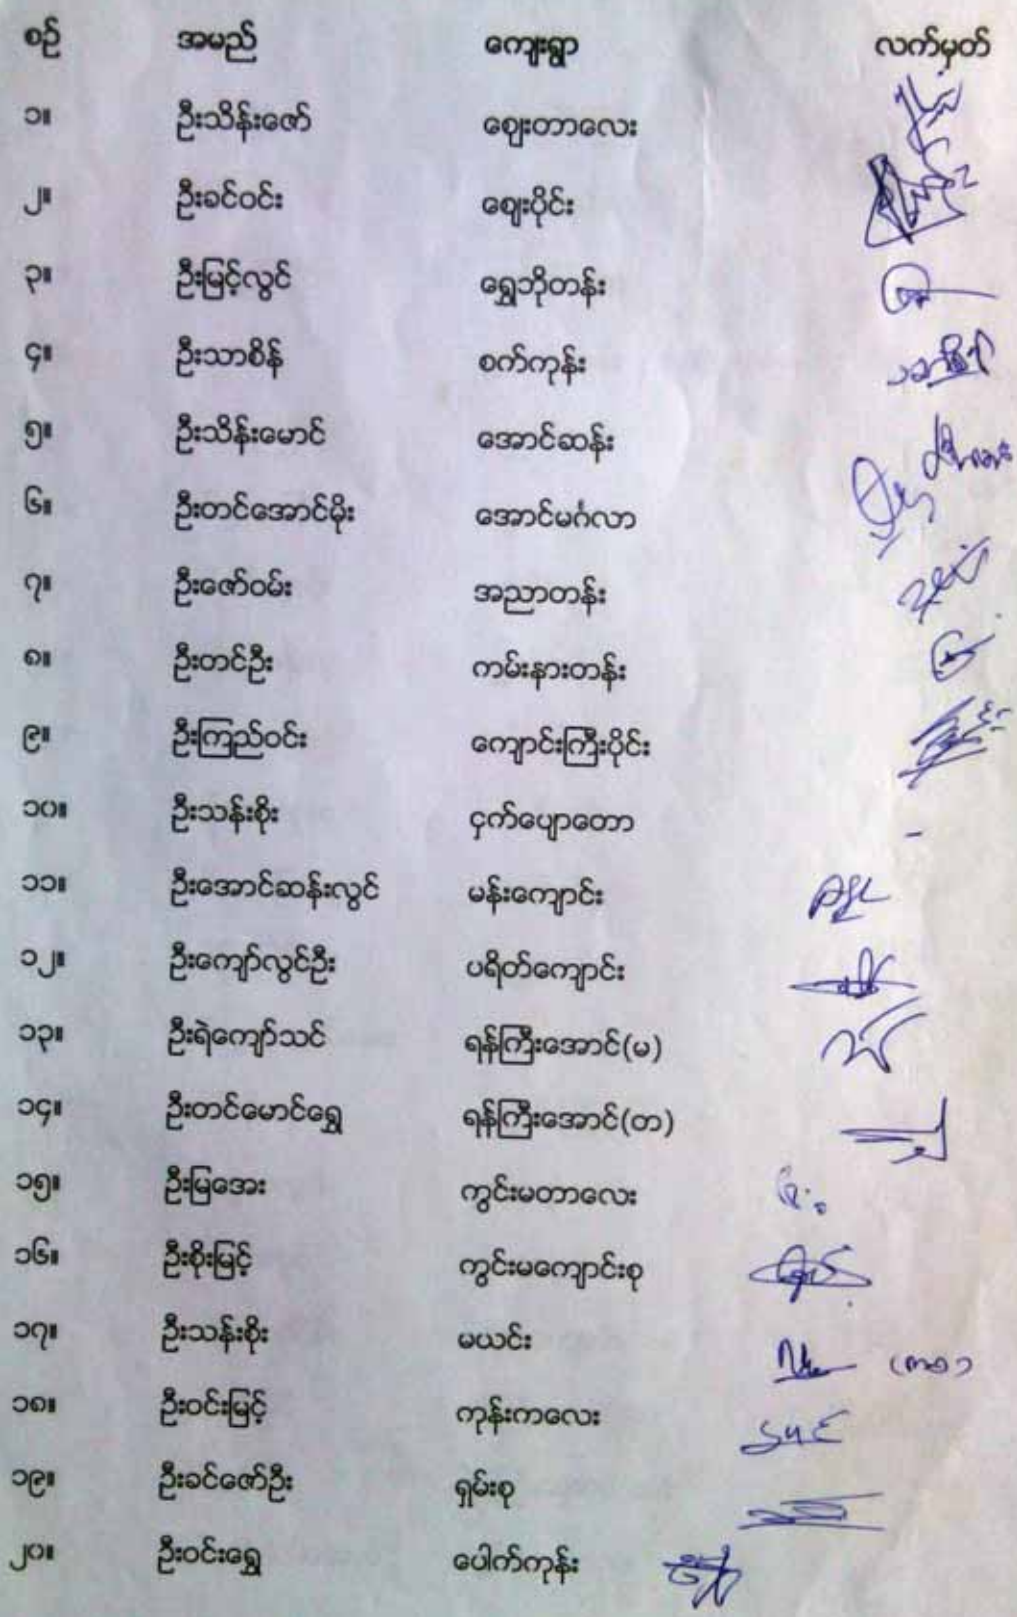 စဉ် အမည် ကျေးရွာ လက်မှတ်
၁။ ဦးသိန်းဇော် ဈေးတာလေး
၂။ ဦးခင်ဝင်း ဈေးပိုင်း
၃။ ဦးမြင့်လွင် ရွှေဘိုတန်း
၄။ ဦးသာစိန် စက်ကုန်း
၅။ ဦးသိန်းမောင် အောင်ဆန်း
၆။ ဦးတင်အောင်မိုး အောင်မင်္ဂလာ
၇။ ဦးဇော်ဝမ်း အညာတန်း
၈။ ဦးတင်ဦး ကမ်းနားတန်း
၉။ ဦးကြည်ဝင်း ကျောင်းကြီးပိုင်း
၁၀။ ဦးသန်းစိုး ငှက်ပျောတော -
၁၁။ ဦးအောင်ဆန်းလွင် မန်းကျောင်း
၁၂။ ဦးကျော်လွင်ဦး ပရိတ်ကျောင်း
၁၃။ ဦးရဲကျော်သင် ရန်ကြီးအောင်(မ)
၁၄။ ဦးတင်မောင်ရွှေ ရန်ကြီးအောင်(တ)
၁၅။ ဦးမြအေး ကွင်းမတာလေး
၁၆။ ဦးစိုးမြင့် ကွင်းမကျောင်းစု
၁၇။ ဦးသန်းစိုး မယင်း
၁၈။ ဦးဝင်းမြင့် ကုန်းကလေး
၁၉။ ဦးခင်ဇော်ဦး ရှမ်းစု
၂၀။ ဦးဝင်းရွှေ ပေါက်ကုန်း